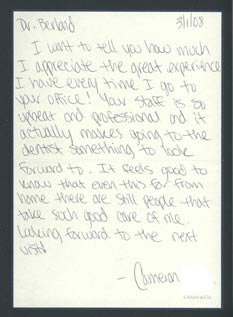 Dr. Berland 3/1/08
I want to tell you how much
I appreciate the great experience
I have every time I go to
your office! Your staff is so
upbeat and professional and it
actually makes going to the
dentist something to look
forward to. It feels good to
know that even this far from
home there are still people that
take such good care of me.
Looking forward to the next
visit!
- Cameron
CRANE & CO.